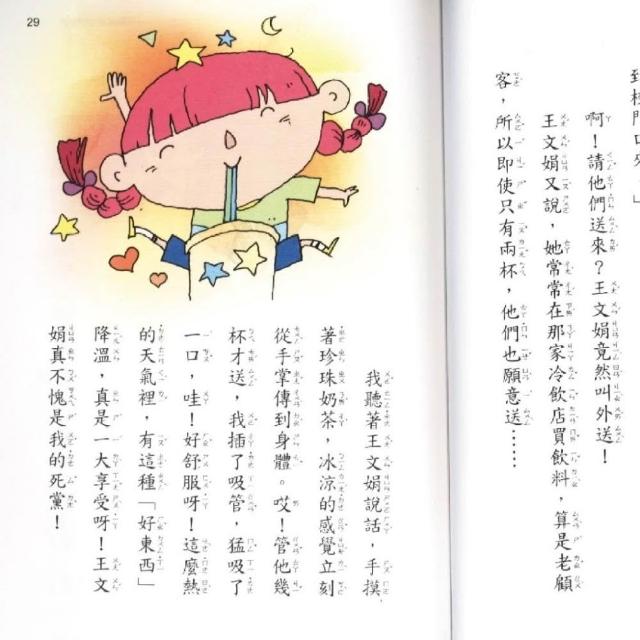 到校門口來。」
啊！請他們送來？王文娟竟然叫外送！
王文娟又說，她常常在那家冷飲店買飲料，算是老顧
客，所以即使只有兩杯，他們也願意送……
29
我聽著王文娟說話，手摸
著珍珠奶茶，冰涼的感覺立刻
從手掌傳到身體。哎！管他幾
杯才送，我插了吸管，猛吸了
一口，哇！好舒服呀！這麼熱
的天氣裡，有這種「好東西」
降溫，真是一大享受呀！王文
娟真不愧是我的死黨！